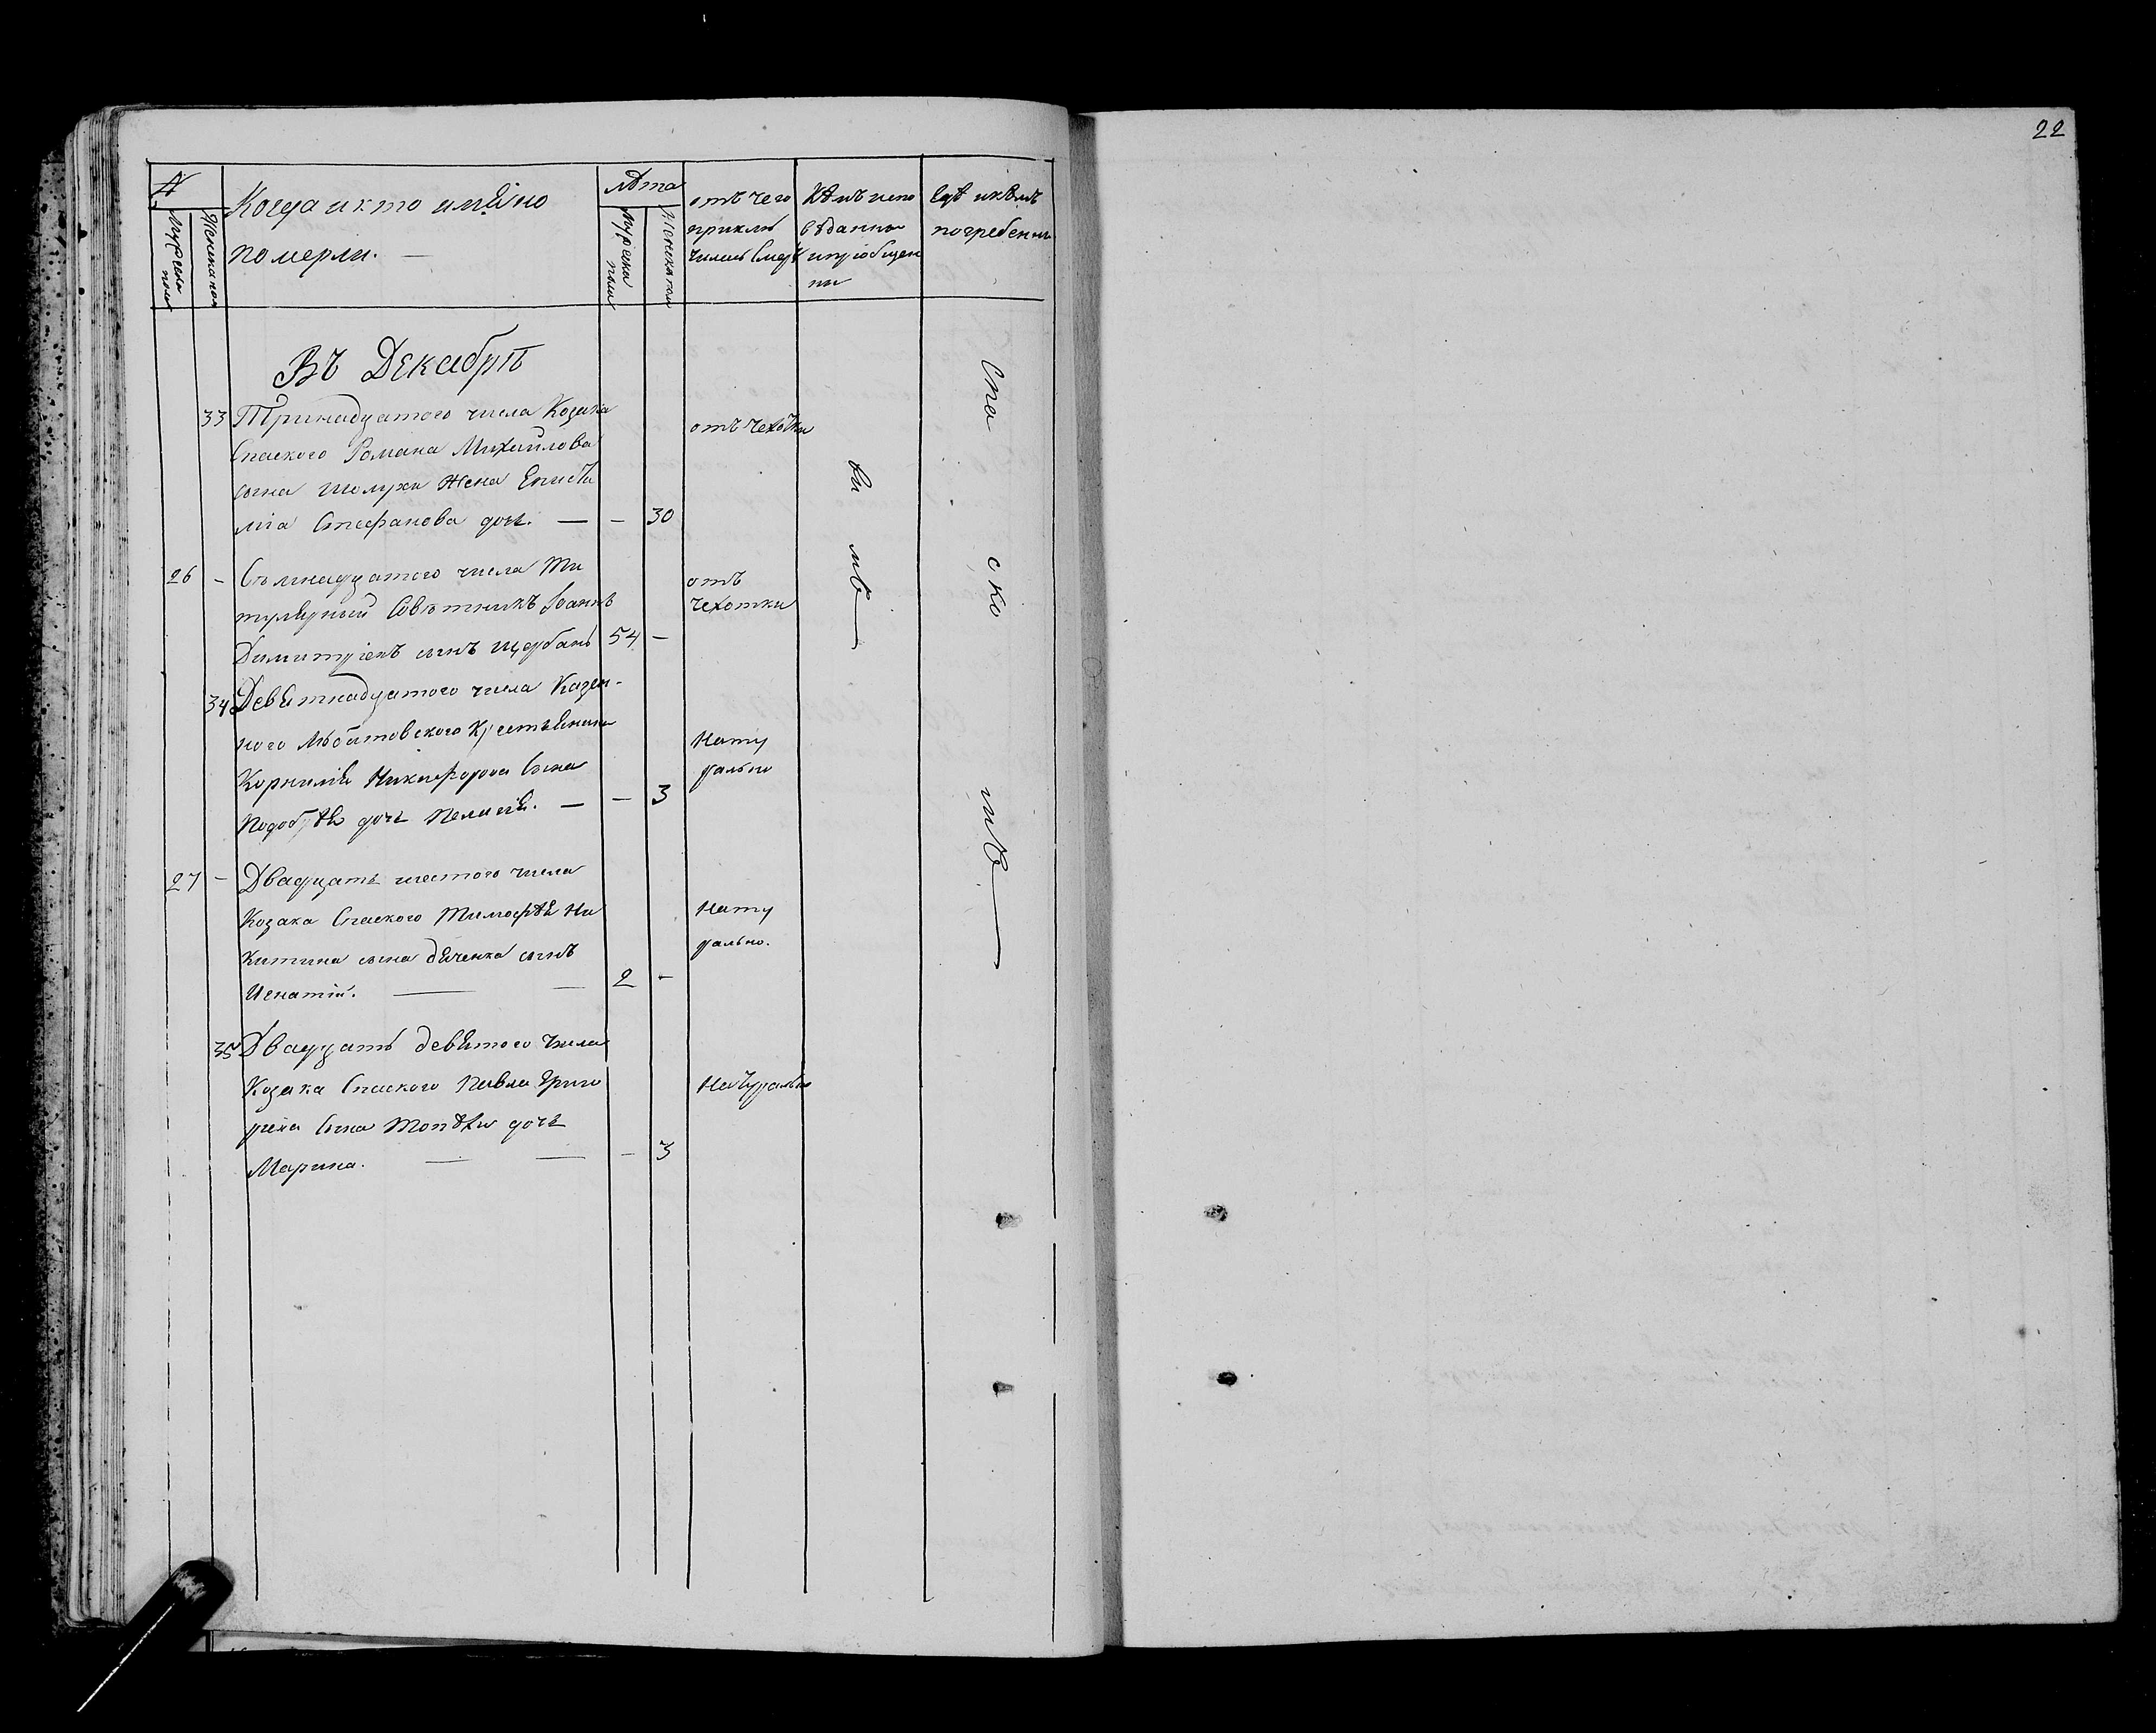 22
№
Мужеска пола
Женска пола
Когда и кто имѧно
померли. —
Лѣта
Мужеска пола
Женска пола
отъ чего
приклю
чилась смерть
Кѣмъ испо
вѣданны
и пріобщен
ны
Где и кѣмъ
погребенны
Въ Декабрѣ
33 Тринадцатого числа Козака
Спаского Романа Михайлова
сына Шолухи жена Епистѣ
міа Стефанова дочь. — — 30
отъ чехотки
26 — Семнадцатого числа Ти
тулярный Совѣтникъ Іоаннъ
Димитріевъ сынъ Щербань 54 —
отъ
чехотки
34 Девѧтнадцатого числа Казен-
ного Любитовского Крестьѧнина
Корниліѧ Никифорова Сына
Подобѣѧ дочь Пелагіѧ. — — 3
Нату
рально
27 — Двадцать шестого числа
Козака Спаского Тимофѣѧ Ни
китина сына Дѧченка сынъ
Игнатій. — — 2 —
Нату
рально.
35 Двадцать девѧтого числа
Козака Спаского Павла Григо
ріева Сына Топѣхи дочь
Марина. — — — 3
Натурально